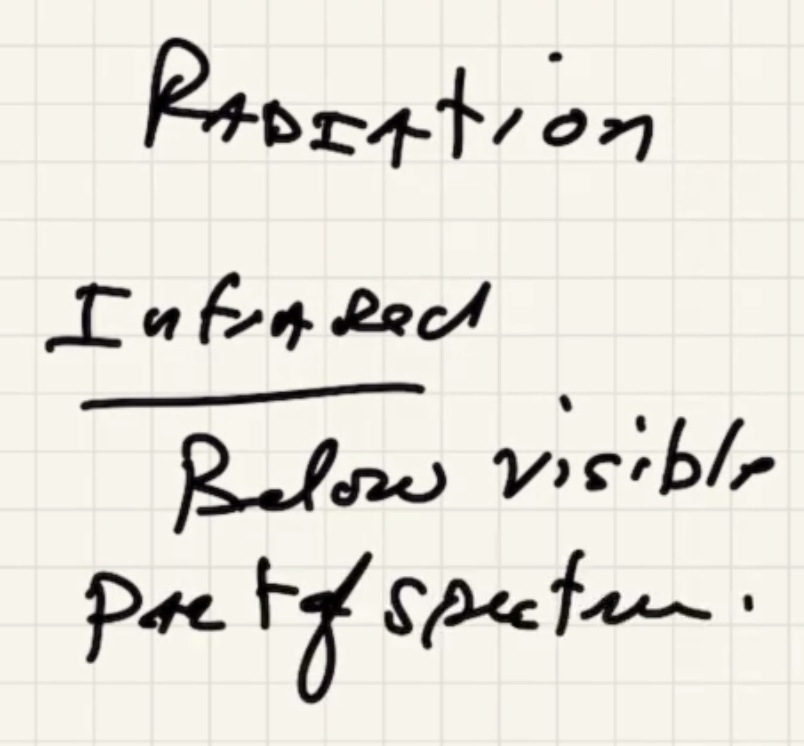 Radiation
Infrared
Below visible
part of spectrum.